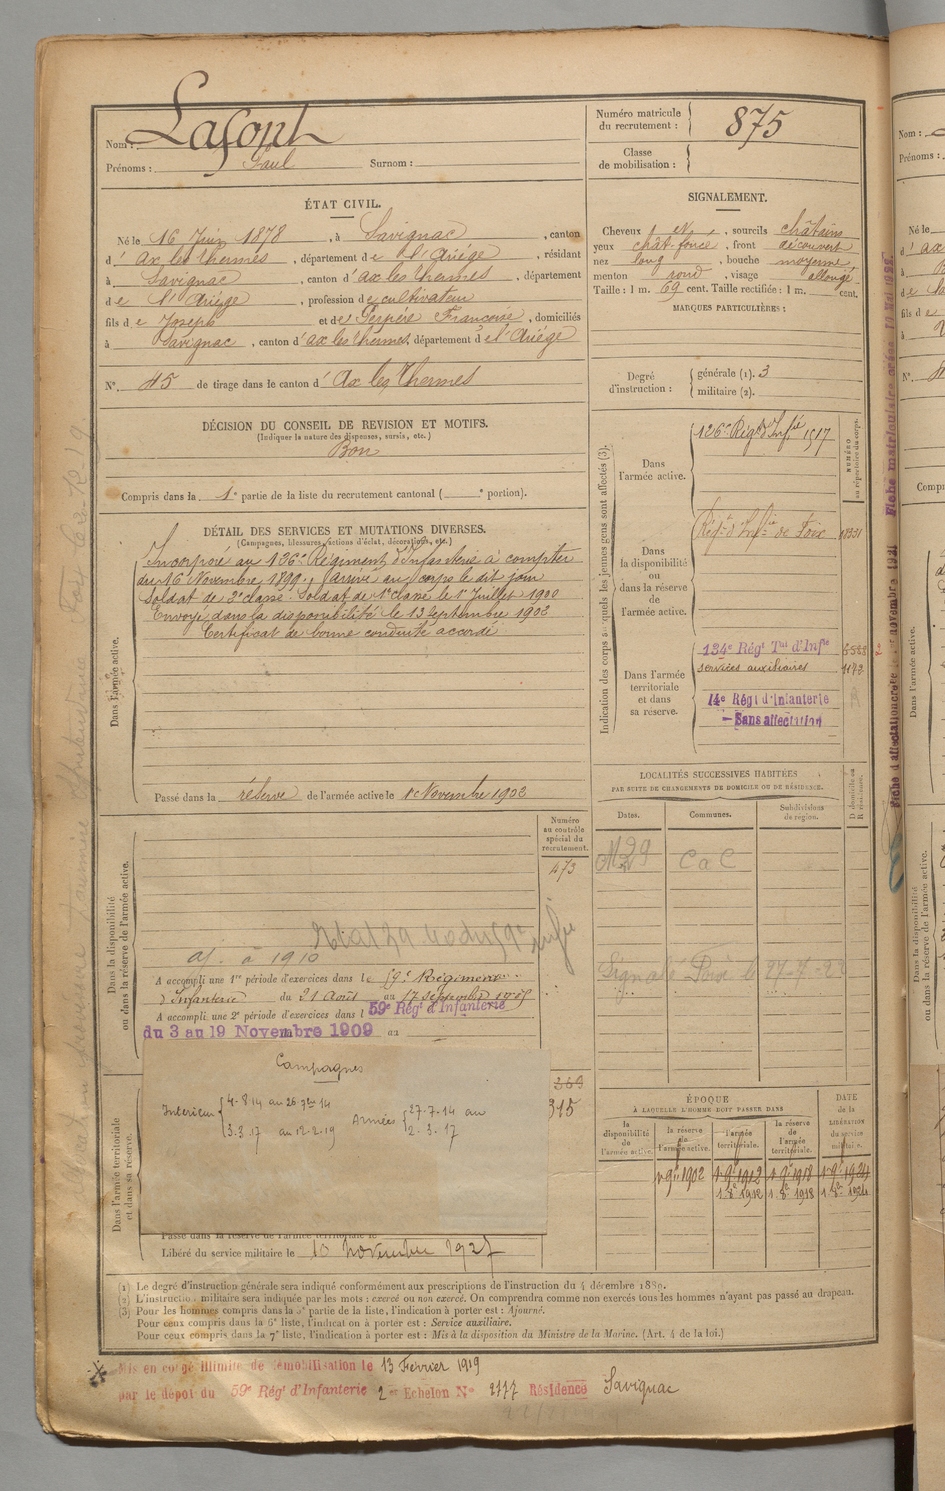 Nom : Lafont
Prénoms : Paul Surnom :
Numéro matricule du recrutement : 875
Classe de mobilisation :
ÉTAT CIVIL.
Né le 16 Juin 1878, à Savignac, canton
d'Ax les Thermes, département de l'Ariége, résidant
à Savignac, canton d'ax les Thermes, département
de l'Ariége, profession de cultivateur
fils de Joseph et de Perpère Françoise, domiciliés
à Savignac, canton d'ax les Thermes, département de l'Ariége
N° 45 de tirage dans le canton d'Ax les Thermes
SIGNALEMENT.
Cheveux et, sourcils châtains
yeux chât foncé, front découvert
nez long, bouche moyenne
menton rond, visage allongé
Taille : 1 m. 69 cent. Taille rectifiée : 1 m. cent.
MARQUES PARTICULIÈRES :
Degré d'instruction : générale (1). 3
militaire (2).
DÉCISION DU CONSEIL DE REVISION ET MOTIFS.
(Indiquer la nature des dispenses, sursis, etc.)
Bon
Compris dans la 1e partie de la liste du recrutement cantonal ( e portion).
DÉTAIL DES SERVICES ET MUTATIONS DIVERSES.
(Campagnes, blessures, actions d'éclat, décorations, etc.)
Dans l'armée active.
Incorporé au 126e Régiment d'Infanterie à compter
du 16 Novembre 1899, arrivé au corps le dit jour
Soldat de 2e classe. Soldat de 1e classe le 1er Juillet 1900
Envoyé dans la disponibilité le 13 Septembre 1902
Certificat de bonne conduite accordé
Passé dans la réserve de l'armée active le 1 Novembre 1902
Indication des corps auxquels les jeunes gens sont affectés (3).
NUMÉRO au répertoire du corps.
Dans l'armée active.
126e Régt d'Infie 1517
Dans la disponibilité ou dans la réserve de l'armée active.
Régt d'Infie de Foix
Dans l'armée territoriale et dans sa réserve.
134e Régt Tal d'Infie
services auxiliaires 1172
14e Régt d'Infanterie
— Sans affectation
LOCALITÉS SUCCESSIVES HABITÉES
PAR SUITE DE CHANGEMENTS DE DOMICILE OU DE RÉSIDENCE.
Dates. Communes. Subdivisions de région. D domicile ou R résidence.
CaC
Dans la disponibilité ou dans la réserve de l'armée active.
Numéro au contrôle spécial du recrutement.
473
aj. à 1910
A accompli une 1re période d'exercices dans le 59e Régiment
d'Infanterie du 21 Août au 17 Septembre
A accompli une 2e période d'exercices dans l 59e Régt d'Infanterie
du 3 au 19 Novembre 1909 au
Dans l'armée territoriale et dans sa réserve.
369
315
Campagnes
Intérieur 4-8 14 au 26 7bre 14
3.3.17 au 12-2-19
Armées 27-7-14 au
2-3-17
Passé dans la réserve de l'armée territoriale le
Libéré du service militaire le 10 Novembre 1927
ÉPOQUE
À LAQUELLE L'HOMME DOIT PASSER DANS
DATE de la LIBÉRATION du service militaire.
la disponibilité de l'armée active.
la réserve de l'armée active.
l'armée territoriale.
la réserve de l'armée territoriale.
1 9bre 1902 1 9bre 1912 1 9bre 1918 1 9bre 1924
1 8bre 1912 1 8bre 1918 1 8bre 1924
(1) Le degré d'instruction générale sera indiqué conformément aux prescriptions de l'instruction du 4 décembre 1889.
(2) L'instruction militaire sera indiquée par les mots : exercé ou non exercé. On comprendra comme non exercés tous les hommes n'ayant pas passé au drapeau.
(3) Pour les hommes compris dans la 5e partie de la liste, l'indication à porter est : Ajourné.
Pour ceux compris dans la 6e liste, l'indication à porter est : Service auxiliaire.
Pour ceux compris dans la 7e liste, l'indication à porter est : Mis à la disposition du Ministre de la Marine. (Art. 4 de la loi.)
Mis en congé illimité de démobilisation le 13 Février 1919
par le dépôt du 59e Régt d'Infanterie 2e Echelon N° 2777 Résidence Savignac